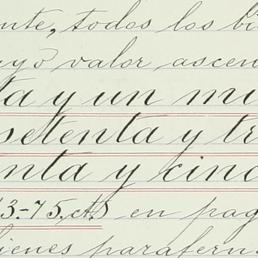 nte, todos los bi
uyo valor ascen
ta y un mi
setenta y tr
nta y cinc
3.-75, cts) en pag
bienes paraferna